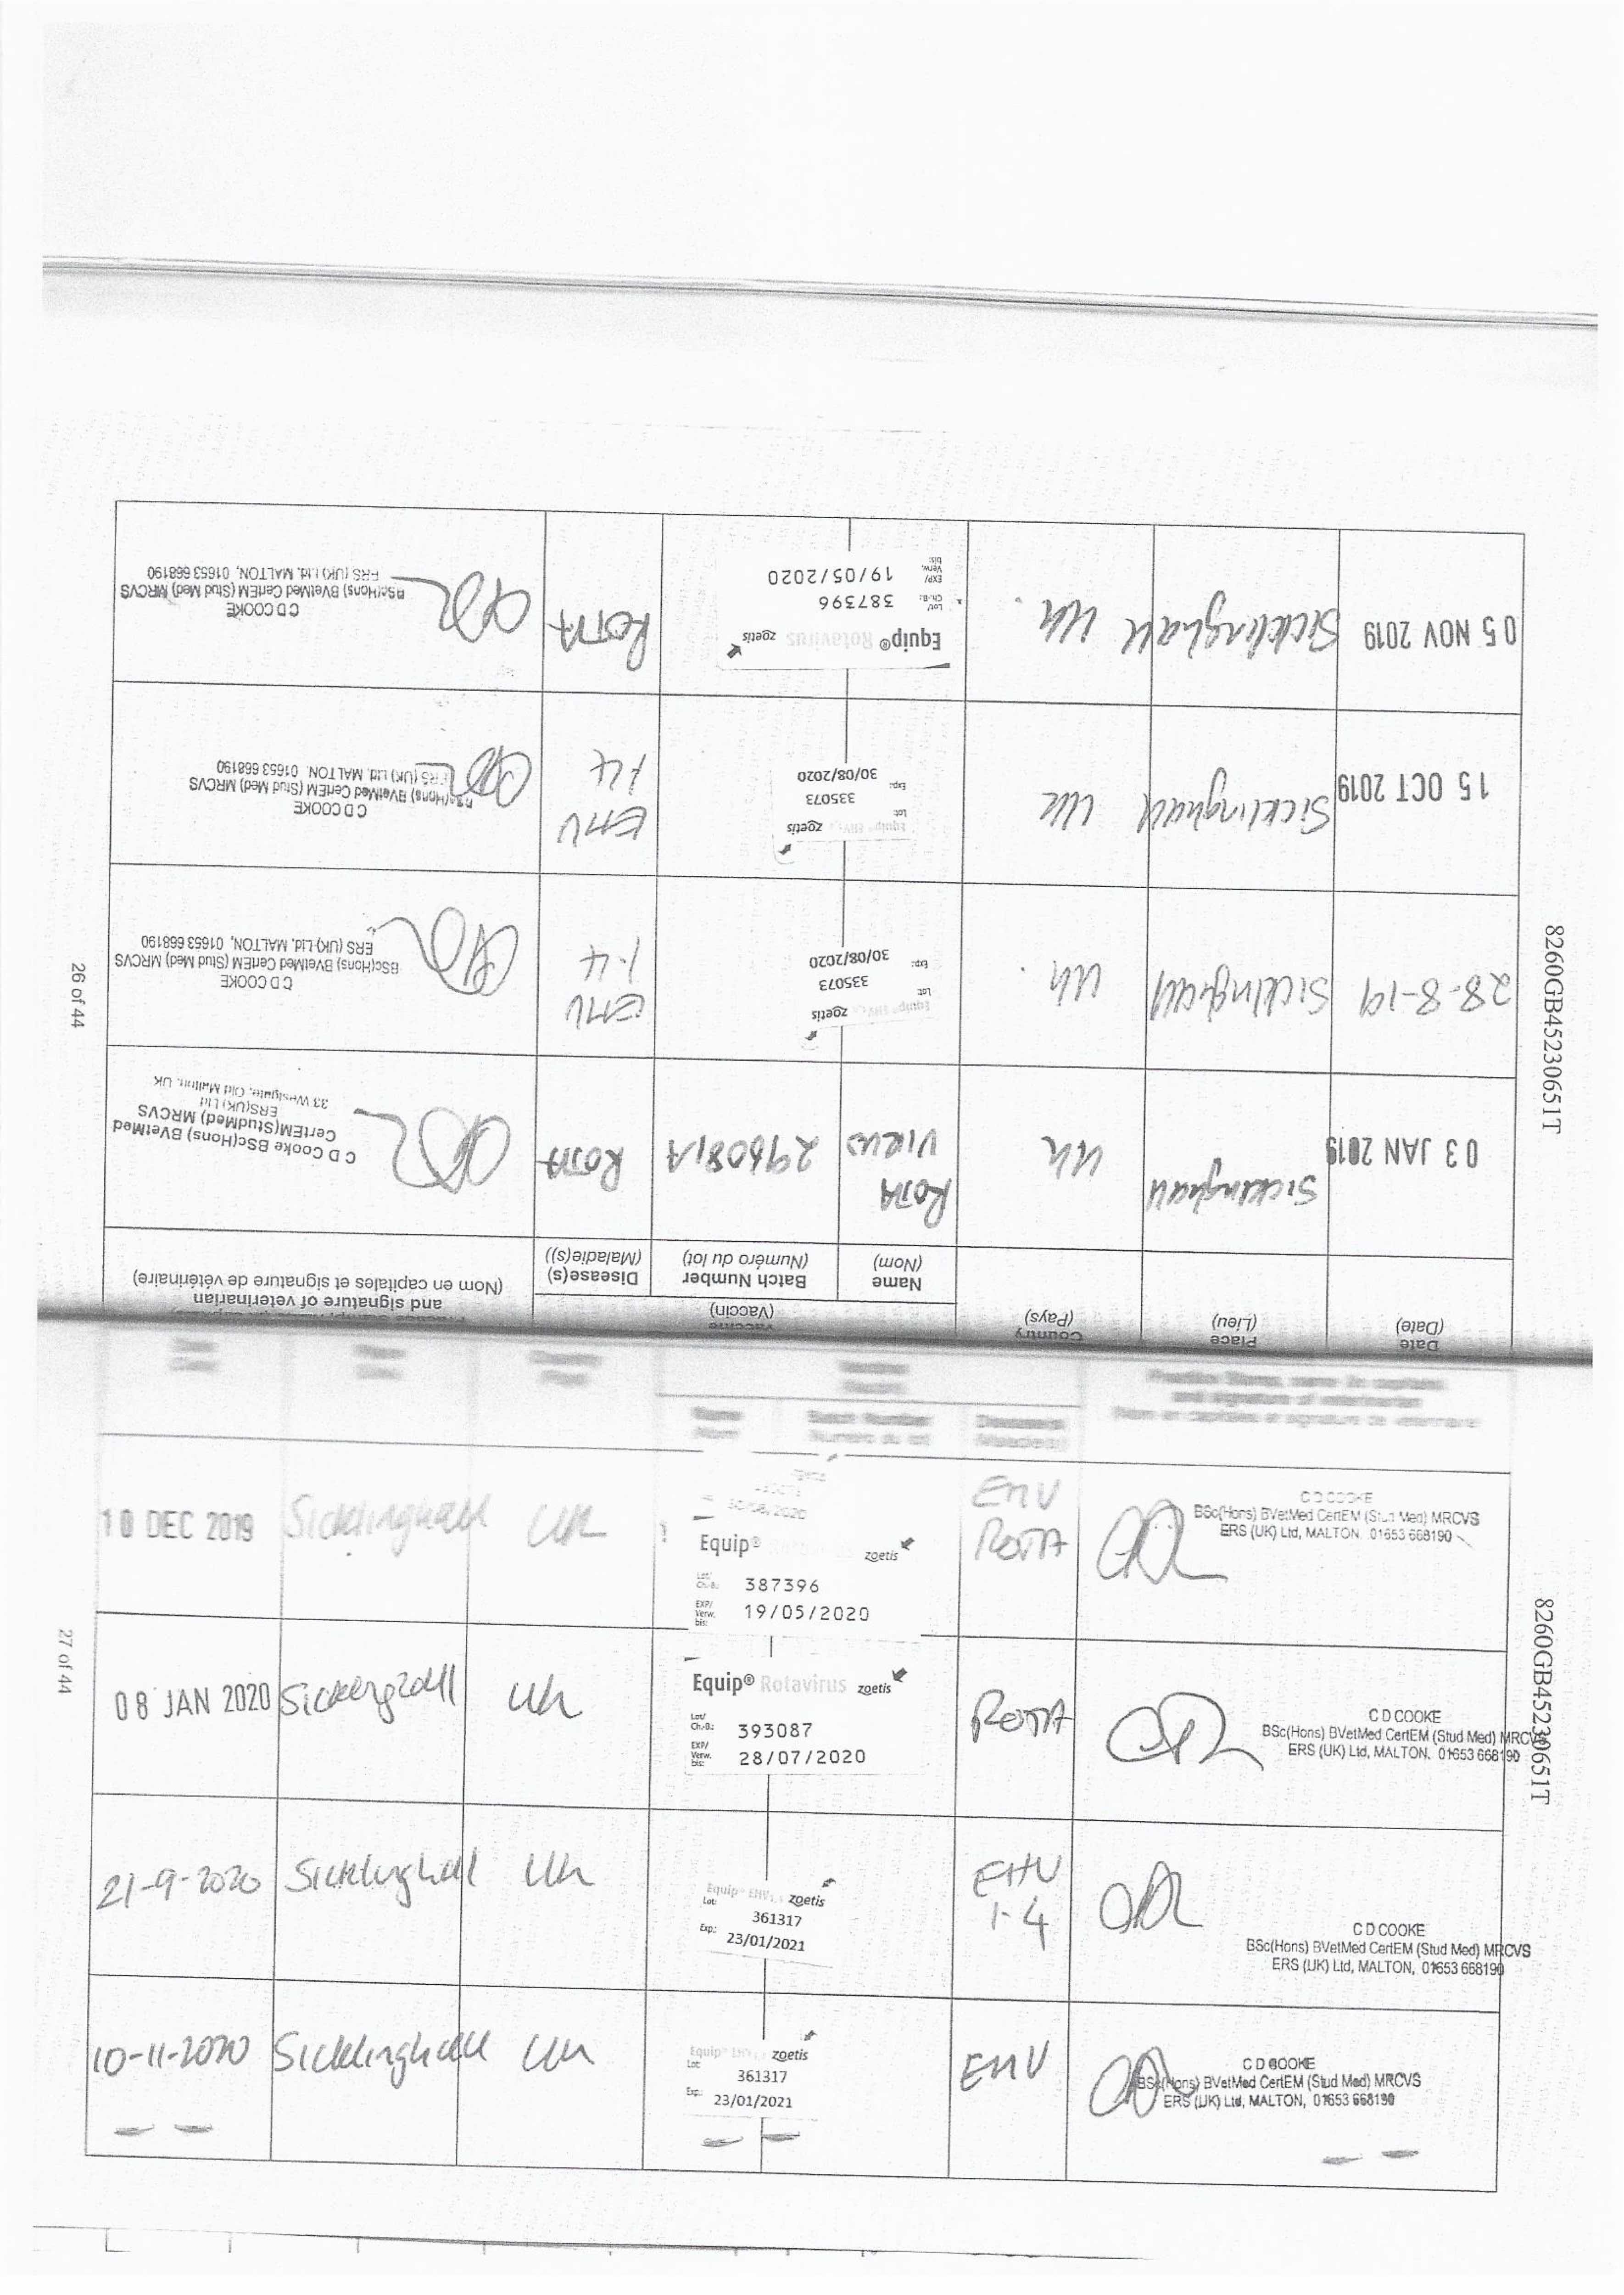 8260GB45230651T
Date
(Date)
Place
(Lieu)
Country
(Pays)
Vaccine
(Vaccin)
Name
(Nom)
Batch Number
(Numéro du lot)
Disease(s)
(Maladie(s))
and signature of veterinarian
(Nom en capitales et signature de vétérinaire)
03 JAN 2019
Sicklinghall
Uk
ROTA
VIRUS
296081A
ROTA
C D Cooke BSc(Hons) BVetMed
CertEM(StudMed) MRCVS
ERS(UK) Ltd
33 Westgate, Old Malton, UK
28-8-19
Sicklinghall
Uk
Equip® EHV zoetis
Lot: 335073
Exp: 30/08/2020
EHV
1-4
C D COOKE
BSc(Hons) BVetMed CertEM (Stud Med) MRCVS
ERS (UK) Ltd, MALTON, 01653 668190
15 OCT 2019
Sicklinghall
Uk
Equip® EHV zoetis
Lot: 335073
Exp: 30/08/2020
EHV
1-4
C D COOKE
BSc(Hons) BVetMed CertEM (Stud Med) MRCVS
ERS (UK) Ltd, MALTON, 01653 668190
05 NOV 2019
Sicklinghall
Uk
Equip® Rotavirus zoetis
Lot/
Ch.-B.: 387396
EXP/
Verw.
bis: 19/05/2020
ROTA
C D COOKE
BSc(Hons) BVetMed CertEM (Stud Med) MRCVS
ERS (UK) Ltd, MALTON, 01653 668190
26 of 44
8260GB45230651T
Name
Nom
Batch Number
Numéro du lot
Disease(s)
Maladie(s)
Practice Stamp, name (in capitals)
and signature of veterinarian
Nom en capitales et signature de vétérinaire
10 DEC 2019
Sicklinghall
UK
30/08/2020
Equip® zoetis
Lot/
Ch.-B.: 387396
EXP/
Verw.
bis: 19/05/2020
EHV
ROTA
C D COOKE
BSc(Hons) BVetMed CertEM (Stud Med) MRCVS
ERS (UK) Ltd, MALTON, 01653 668190
08 JAN 2020
Sicklinghall
Uk
Equip® Rotavirus zoetis
Lot/
Ch.-B.: 393087
EXP/
Verw.
bis: 28/07/2020
ROTA
C D COOKE
BSc(Hons) BVetMed CertEM (Stud Med) MRCVS
ERS (UK) Ltd, MALTON, 01653 668190
21-9-2020
Sicklinghall
Uk
Equip® EHV zoetis
Lot:
361317
Exp: 23/01/2021
EHV
1-4
C D COOKE
BSc(Hons) BVetMed CertEM (Stud Med) MRCVS
ERS (UK) Ltd, MALTON, 01653 668190
10-11-2020
Sicklinghall
Uk
Equip® EHV zoetis
Lot:
361317
Exp: 23/01/2021
EHV
C D COOKE
BSc(Hons) BVetMed CertEM (Stud Med) MRCVS
ERS (UK) Ltd, MALTON, 01653 668190
27 of 44